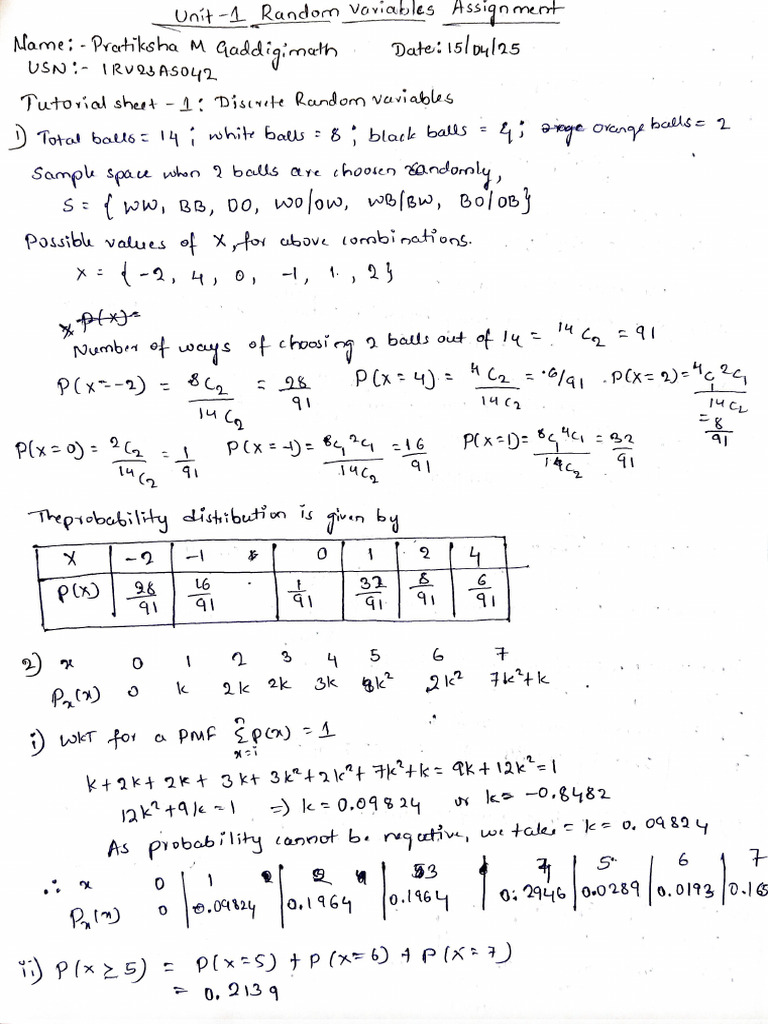 Unit-1 Random Variables Assignment
Name:- Pratiksha M Gaddigimath Date: 15/04/25
USN:- 1RV23AS042
Tutorial sheet -1: Discrete Random variables
1) Total balls = 14; white balls = 8; black balls = 4; orange balls = 2
Sample space when 2 balls are choosen randomly,
S = { WW, BB, OO, WO/OW, WB/BW, BO/OB}
Possible values of X, for above combinations.
X = { -2, 4, 0, -1, 1, 2}
Number of ways of choosing 2 balls out of 14 = ¹⁴C₂ = 91
P(X=-2) = 8C₂/14C₂ = 28/91 P(X=4) = 4C₂/14C₂ = 6/91 . P(X=2) = 4C₁2C₁/14C₂ = 8/91
P(X=0) = 2C₂/14C₂ = 1/91 P(X=-1) = 8C₁2C₁/14C₂ = 16/91 P(X=1) = 8C₁4C₁/14C₂ = 32/91
The probability distribution is given by
X -2 -1 0 1 2 4
P(X) 28/91 16/91 1/91 32/91 8/91 6/91
2) x 0 1 2 3 4 5 6 7
Pₓ(x) 0 k 2k 2k 3k 3k² 2k² 7k²+k
i) WKT for a PMF Σ p(x) = 1
k+2k+2k+3k+3k²+2k²+7k²+k = 9k+12k² = 1
12k²+9k=1 => k=0.09824 or k= -0.8482
As probability cannot be negative, we take = k = 0.09824
∴ x 0 1 2 3 4 5 6 7
Pₓ(x) 0 0.09824 0.1964 0.1964 0.2946 0.0289 0.0193 0.165
ii) P(X ≥ 5) = P(X=5) + P(X=6) + P(X=7)
= 0.2139